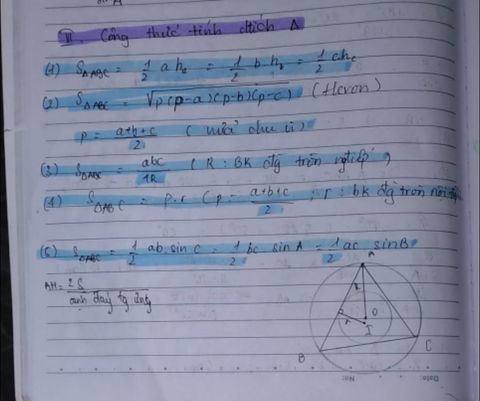 II. Công thức tính dtích Δ
(1) S ΔABC = 1/2 a hₐ = 1/2 b.h_b = 1/2 ch_c
(2) S ΔABC = √p(p-a)(p-b)(p-c) (Heron)
p = a+b+c/2 (nửa chu vi)
(3) S ΔABC = abc/4R (R: BK đg tròn ngtiếp)
(4) S ΔABC = p.r (p = a+b+c/2; r: bk đg tròn nội
(5) S ΔABC = 1/2 ab sin C = 1/2 bc sin A = 1/2 ac sin B
AH = 2S/cạnh đáy tg ứng
A
r
O
I
B
C
No:
Date: